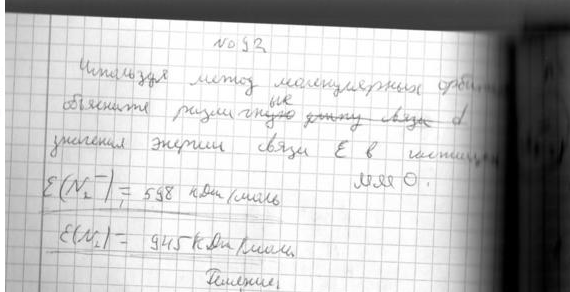 № 92
Используя метод молекулярных орбит
объясните различные длину связи d
значения энергии связи E в частицах
ММО.
E(N₂⁻) = 598 кДж/моль
E(N₂) = 945 кДж/моль
Решение: